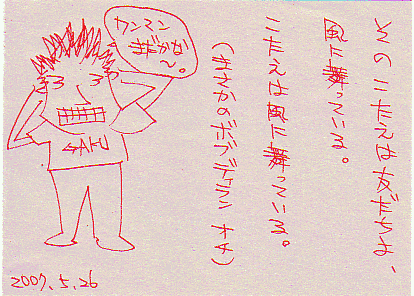 そのこたえは友だちよ、
風に舞っている。
こたえは風に舞っている。
(まさかのボブディラン オチ)
ワンマン
まぢかな
〜。
GAKU
2007.5.26